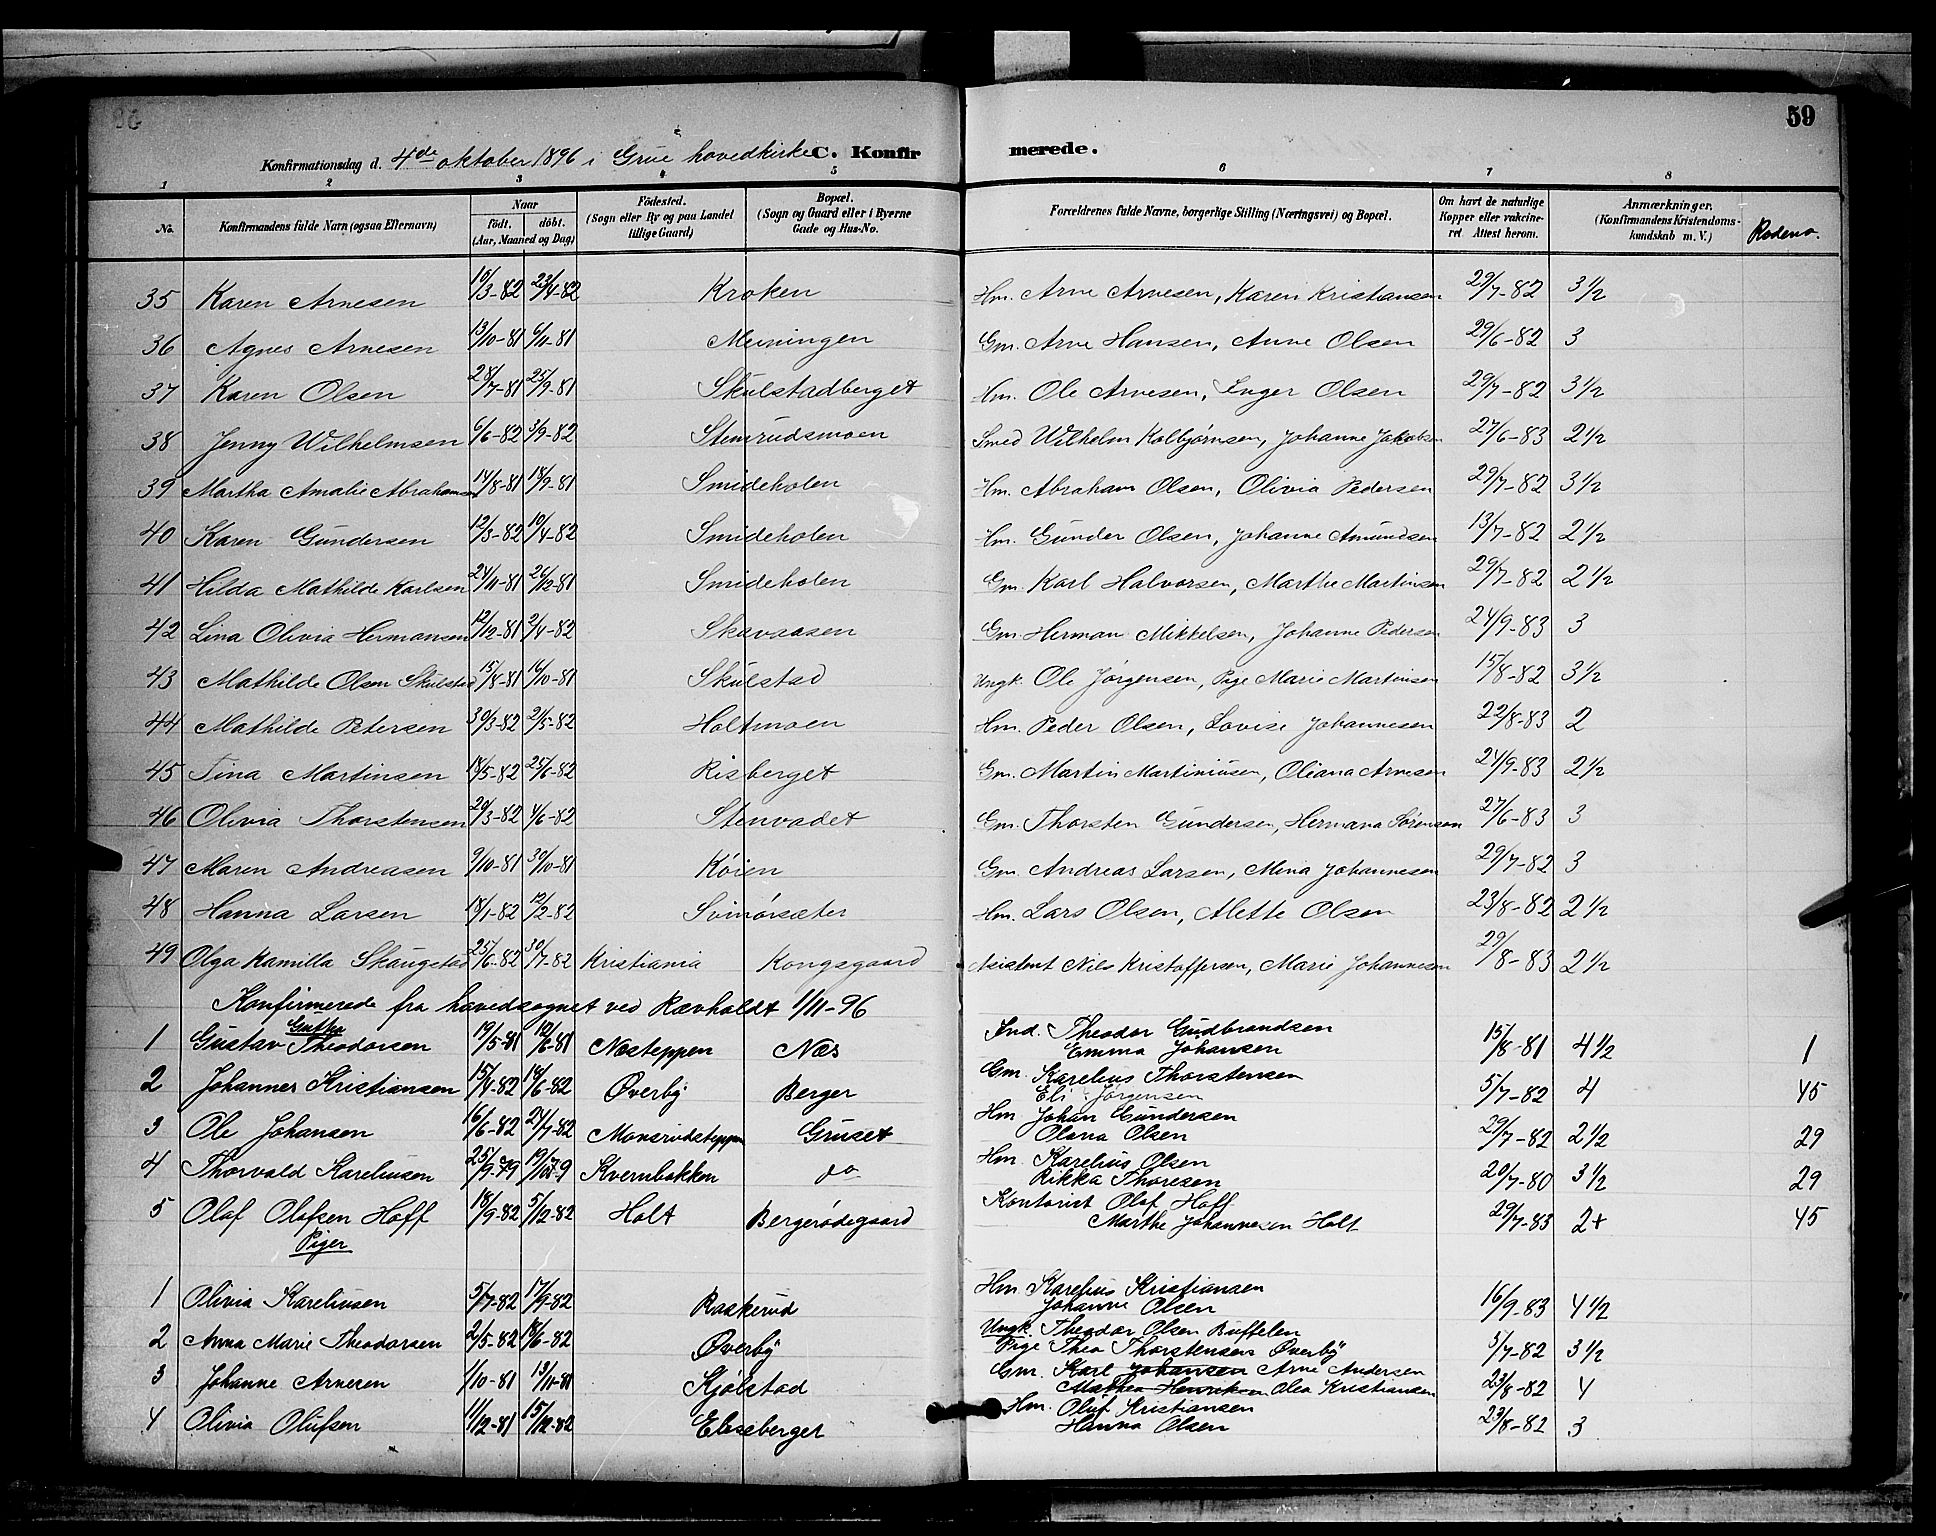 59
Konfirmationsdag d. 4de oktober 1896 i Grue hovedkirke C. Konfirmerede.
1 2 3 4 5 6 7 8
No. Konfirmandens fulde Navn (ogsaa Efternavn) Naar født. døbt. (Aar, Maaned og Dag) Fødested. (Sogn eller By og paa Landet tillige Gaard) Bopæl. (Sogn og Gaard eller i Byerne Gade og Hus-No. Forældrenes fulde Navne, borgerlige Stilling (Næringsvei) og Bopæl. Om havt de naturlige Kopper eller vakcineret. Attest herom. Anmærkninger. (Konfirmandens Kristendomskundskab m. V.) Rodeno.
35 Karen Arnesen 10/3-82 23/4-82 Kroken Hm. Arne Arnesen, Karen Kristiansen 29/7-82 3 1/2
36 Agnes Arnesen 13/10-81 6/11-81 Meiningen Gm. Arne Hansen, Anne Olsen 29/6-82 3
37 Karen Olsen 28/7-81 25/9-81 Skulstadberget Hm. Ole Arnesen, Inger Olsen 29/7-82 3 1/2
38 Jenny Wilhelmsen 6/6-82 3/9-82 Stemrudsmoen Smed Wilhelm Kolbjørnsen, Johanne Jakobsen 27/6-83 2 1/2
39 Martha Amalie Abrahamsen 14/8-81 18/9-81 Smideholen Hm. Abraham Olsen, Olivia Pedersen 29/7-82 3 1/2
40 Karen Gundersen 12/3-82 10/4-82 Smideholen Hm. Gunder Olsen, Johanne Amundsen 13/7-82 2 1/2
41 Hilda Mathilde Karlsen 24/11-81 26/12-81 Smideholen Gm. Karl Halvorsen, Marthe Martinsen 29/7-82 2 1/2
42 Lina Olivia Hermansen 12/12-81 2/4-82 Skavaasen Gm. Herman Mikkelsen, Johanne Pedersen 24/9-83 3
43 Mathilde Olsen Skulstad 15/8-81 16/10-81 Skulstad Ungk. Ole Jørgensen, Pige Marie Martinsen 15/8-82 3 1/2
44 Mathilde Petersen 30/3-82 21/5-82 Holtmoen Hm. Peder Olsen, Lovise Johannesen 22/8-83 2
45 Tina Martinsen 18/5-82 25/6-82 Risberget Gm. Martin Martiniusen, Oliana Arnesen 24/9-83 2 1/2
46 Olivia Thorstensen 29/3-82 4/6-82 Stenvadet Gm. Thorsten Gundersen, Hermana Sørensen 27/6-83 3
47 Maren Andreasen 9/10-81 30/10-81 Køien Gm. Andreas Larsen, Mina Johannesen 29/7-82 3
48 Hanna Larsen 18/1-82 12/2-82 Svinørsæter Hm. Lars Olsen, Mette Olsen 23/8-82 2 1/2
49 Olga Kamilla Skaugstad 25/6-82 30/7-82 Kristiania Kongsgaard Assistent Nils Kristoffersen, Marie Johannesen 29/8-83 2 1/2
Konfirmerede fra hovedsognet ved Rævholdt 1/11-96
1 Gustav Theodorsen 19/5-81 12/6-81 Næsteppen Næs Ind. Theodor Gudbrandsen
Emma Johansen 15/8-81 4 1/2 1
2 Johannes Kristiansen 15/4-82 18/6-82 Øverby Berger Gm. Karelius Thorstensen
Eli Jørgensen 5/7-82 4 45
3 Ole Johansen 16/6-82 24/7-82 Monsrudsteppen Gruset Hm Johan Gundersen
Olava Olsen 29/7-82 2 1/2 29
4 Thorvald Kareliusen 25/9-79 19/10-79 Kvernbakken do Hm. Karelius Olsen
Rikka Thoresen 20/7-80 3 1/2 29
5 Olaf Olafsen Hoff 18/9-82 5/12-82 Holt Bergerødegaard Kontorist Olaf Hoff
Marthe Johannesen Holt 29/7-83 2+ 45
Piger
1 Olivia Kareliusen 5/7-82 17/9-82 Raskerud Hm Karelius Kristiansen
Johanne Olsen 16/9-83 4 1/2
2 Anna Marie Theodorsen 2/5-82 18/6-82 Øverby Ungk. Theodor Olsen Buffelen
Pige Thea Thorstensen Øverby 5/7-82 3 1/2
3 Johanne Arnesen 1/10-81 13/11-81 Kjølstad Gm. Karl Johansen Arne Andersen
Mathea Henriksen Olea Kristiansen 23/8-82 4
4 Olivia Olufsen 11/12-81 15/12-82 Ebseberget Hm. Oluf Kristiansen
Hanna Olsen 23/8-82 3